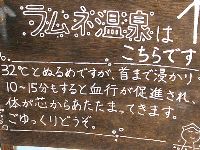 ラムネ温泉は
こちらです
32℃とぬるめですが、首まで浸かり
10〜15分もすると血行が促進され、
体が芯からあたたまってきます。
ごゆっくりどうぞ。